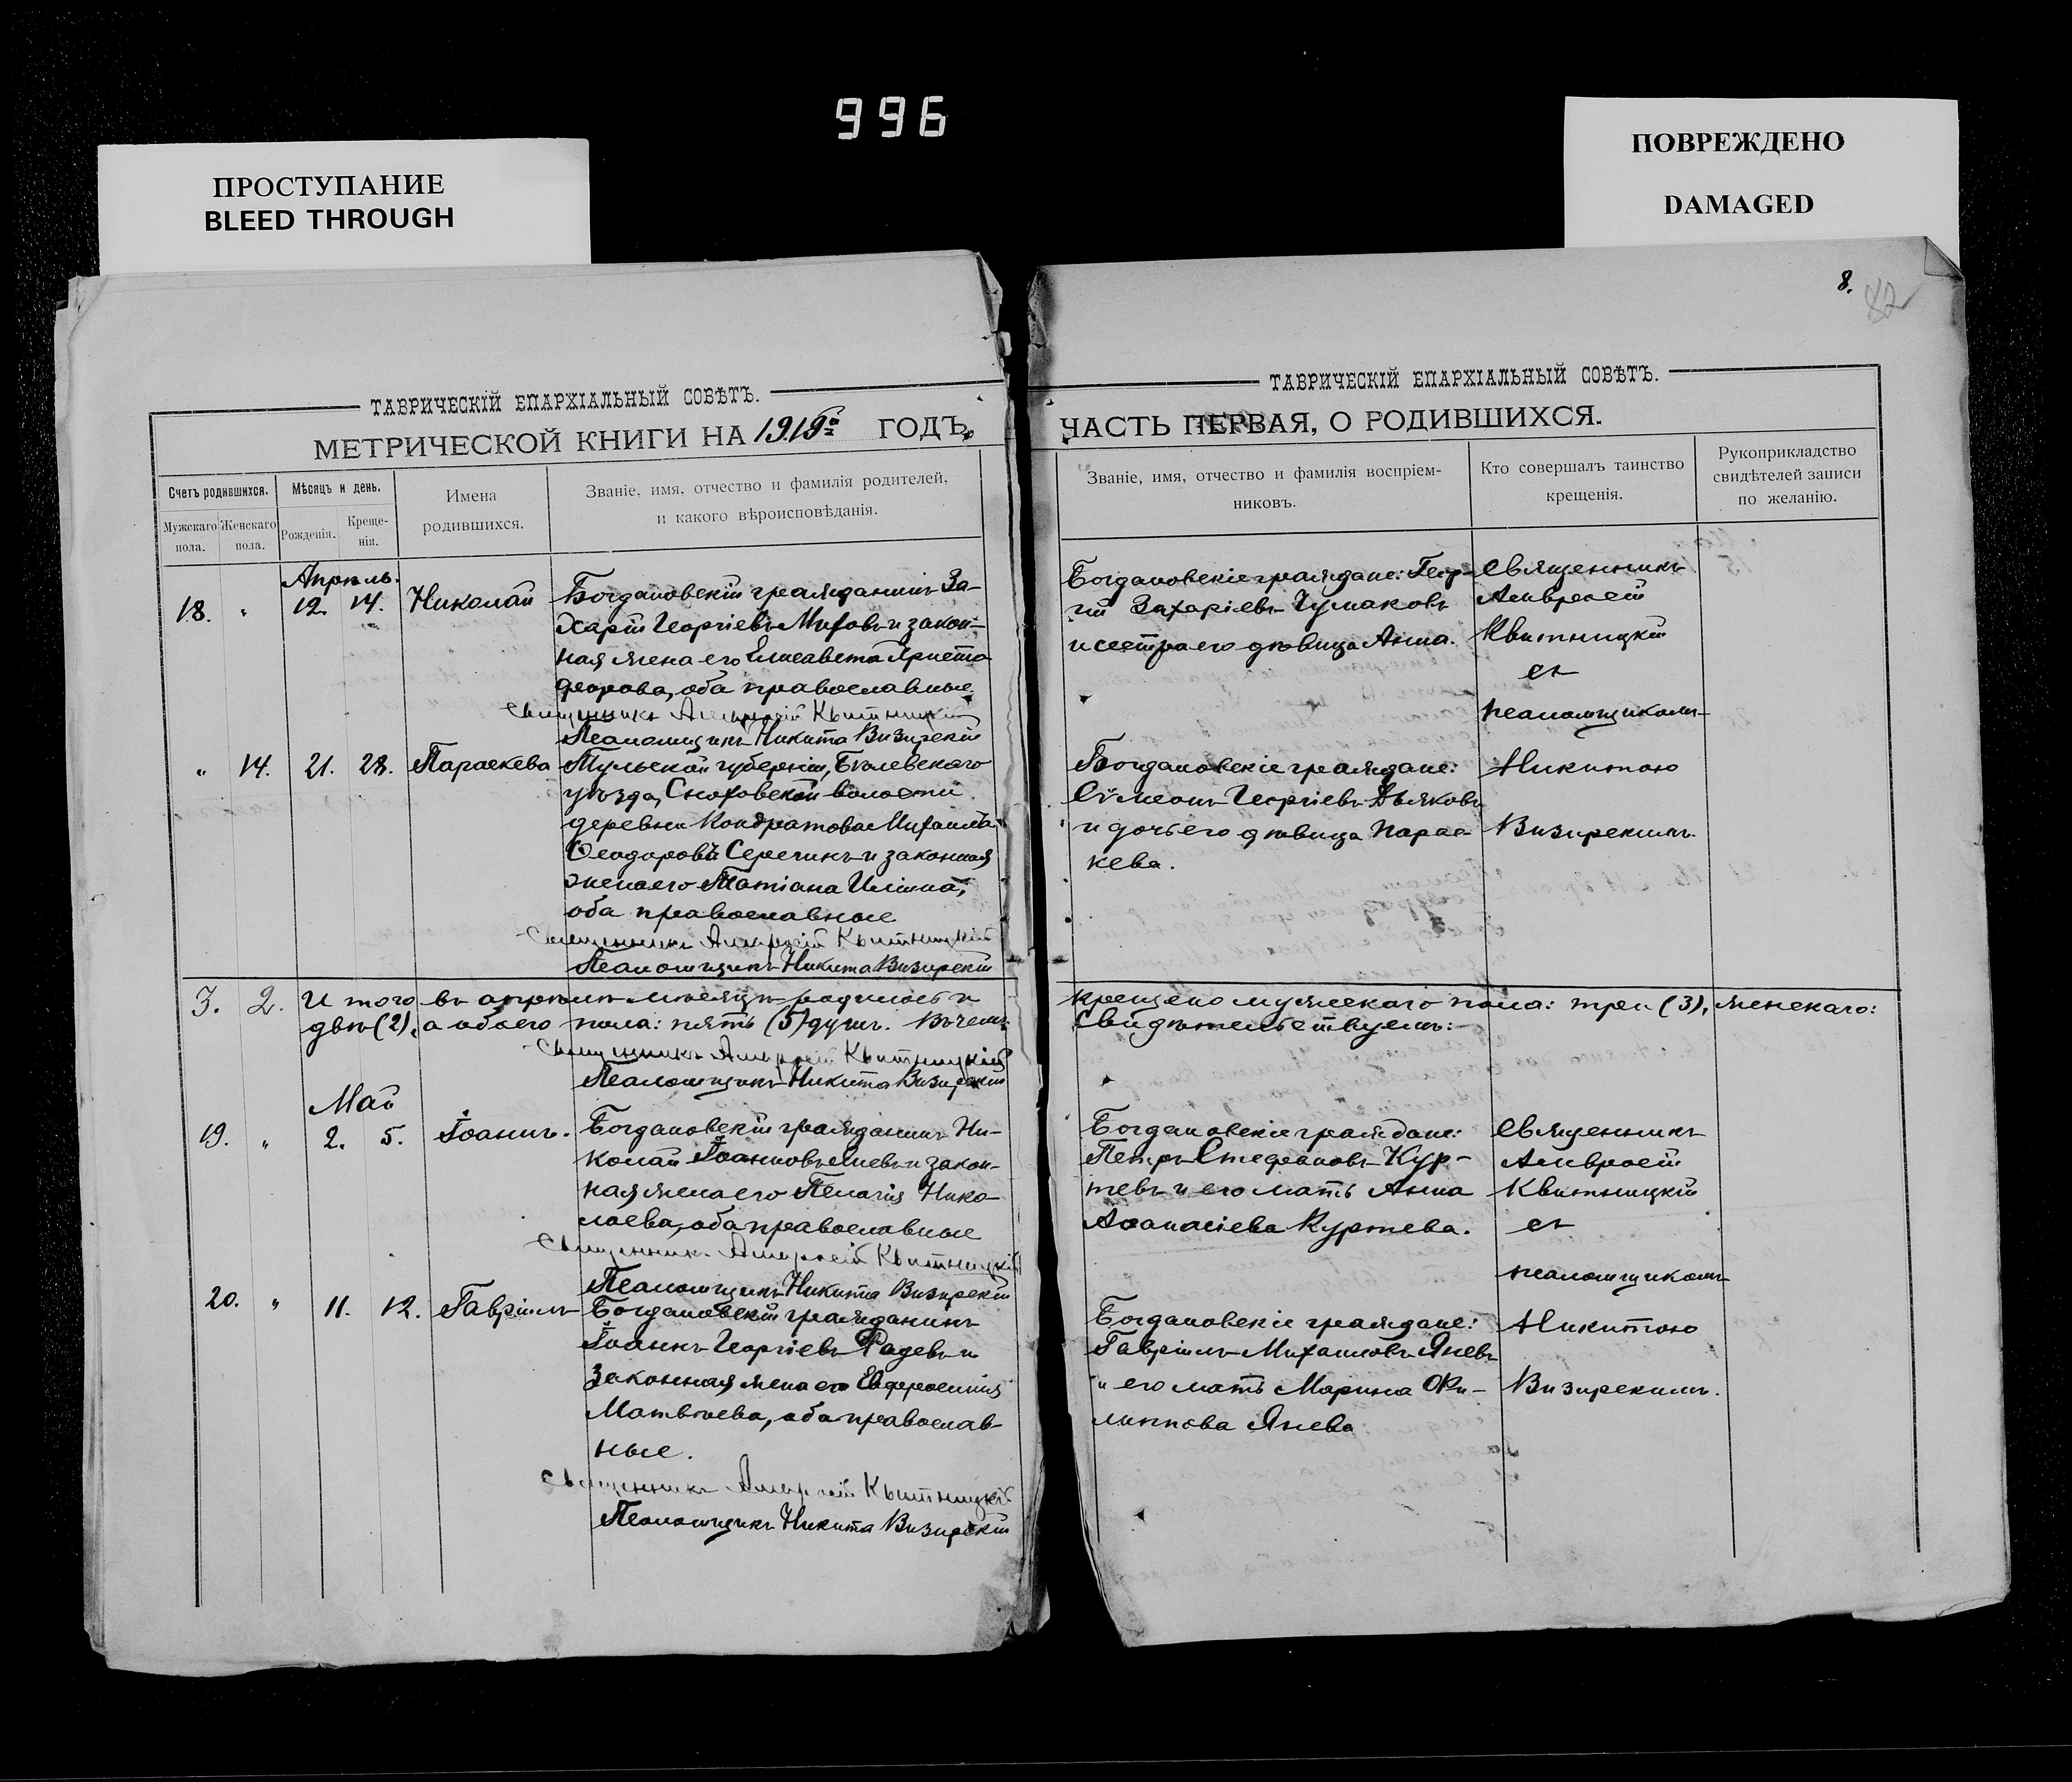 996
ПРОСТУПАНИЕ
BLEED THROUGH
ПОВРЕЖДЕНО
DAMAGED
8.
82
ТАВРИЧЕСКІЙ ЕПАРХІАЛЬНЫЙ СОВѢТЪ.
МЕТРИЧЕСКОЙ КНИГИ НА 1919й ГОДЪ,
Счетъ родившихся.
Мужскаго пола.
Женскаго пола.
Мѣсяцъ и день.
Рожденія.
Креще-
нія.
Имена
родившихся.
Званіе, имя, отчество и фамилія родителей,
и какого вѣроисповѣданія.
Апрѣль.
18. " 12. 14. Николай
Богдановскій гражданинъ За-
харій Георгіевъ Миховъ и закон-
ная жена его Елисавета Христо
форова, оба православные.
Священникъ Амвросій Квитницкій
Псаломщикъ Никита Визирскій
" 14. 21. 28. Параскева
Тульской губерніи, Бѣлевскаго
уѣзда, Сноховской волости
деревни Кондратовы Михаилъ
Ѳеодоровъ Серегинъ и законная
жена его Татіана Ильина,
оба православные
Священникъ Амвросій Квитницкій
Псаломщикъ Никита Визирскій
3. 2. Итого въ апрѣлѣ мѣсяцѣ родилось и
двѣ (2), а обоего пола: пять (5) душъ. Въ чемъ
Священникъ Амвросій Квитницкій
Псаломщикъ Никита Визирскій
Май
19. " 2. 5. Іоаннъ.
Богдановскій гражданинъ Ни-
колай Іоанновъ и закон-
ная жена его Пелагія Нико-
лаева, оба православные
Священникъ Амвросій Квитницкій
Псаломщикъ Никита Визирскій
20. " 11. 12. Гавріилъ
Богдановскій гражданинъ
Іоаннъ Георгіевъ Радевъ и
законная жена его Евфросинія
Матвѣева, оба православ-
ные.
Священникъ Амвросій Квитницкій
Псаломщикъ Никита Визирскій
ТАВРИЧЕСКІЙ ЕПАРХІАЛЬНЫЙ СОВѢТЪ.
ЧАСТЬ ПЕРВАЯ, О РОДИВШИХСЯ.
Званіе, имя, отчество и фамилія воспріем-
никовъ.
Кто совершалъ таинство
крещенія.
Рукоприкладство
свидѣтелей записи
по желанію.
Богдановскіе граждане: Геор-
гій Захаріевъ Чумаковъ
и сестра его дѣвица Анна.
Священникъ
Амвросій
Квитницкій
съ
псаломщикомъ
Богдановскіе граждане:
Сѵмеонъ Георгіевъ Дьяковъ
и дочь его дѣвица Парас-
кева.
Никитою
Визирскимъ.
крещено мужескаго пола: три (3), женскаго:
Свидѣтельствуемъ:
Богдановскіе граждане:
Петръ Стефановъ Кур-
тевъ и его мать Анна
Аѳанасіева Куртева.
Священникъ
Амвросій
Квитницкій
съ
псаломщикомъ
Богдановскіе граждане:
Гавріилъ Михаиловъ Яневъ
и его мать Марина Фи-
липпова Янева
Никитою
Визирскимъ.